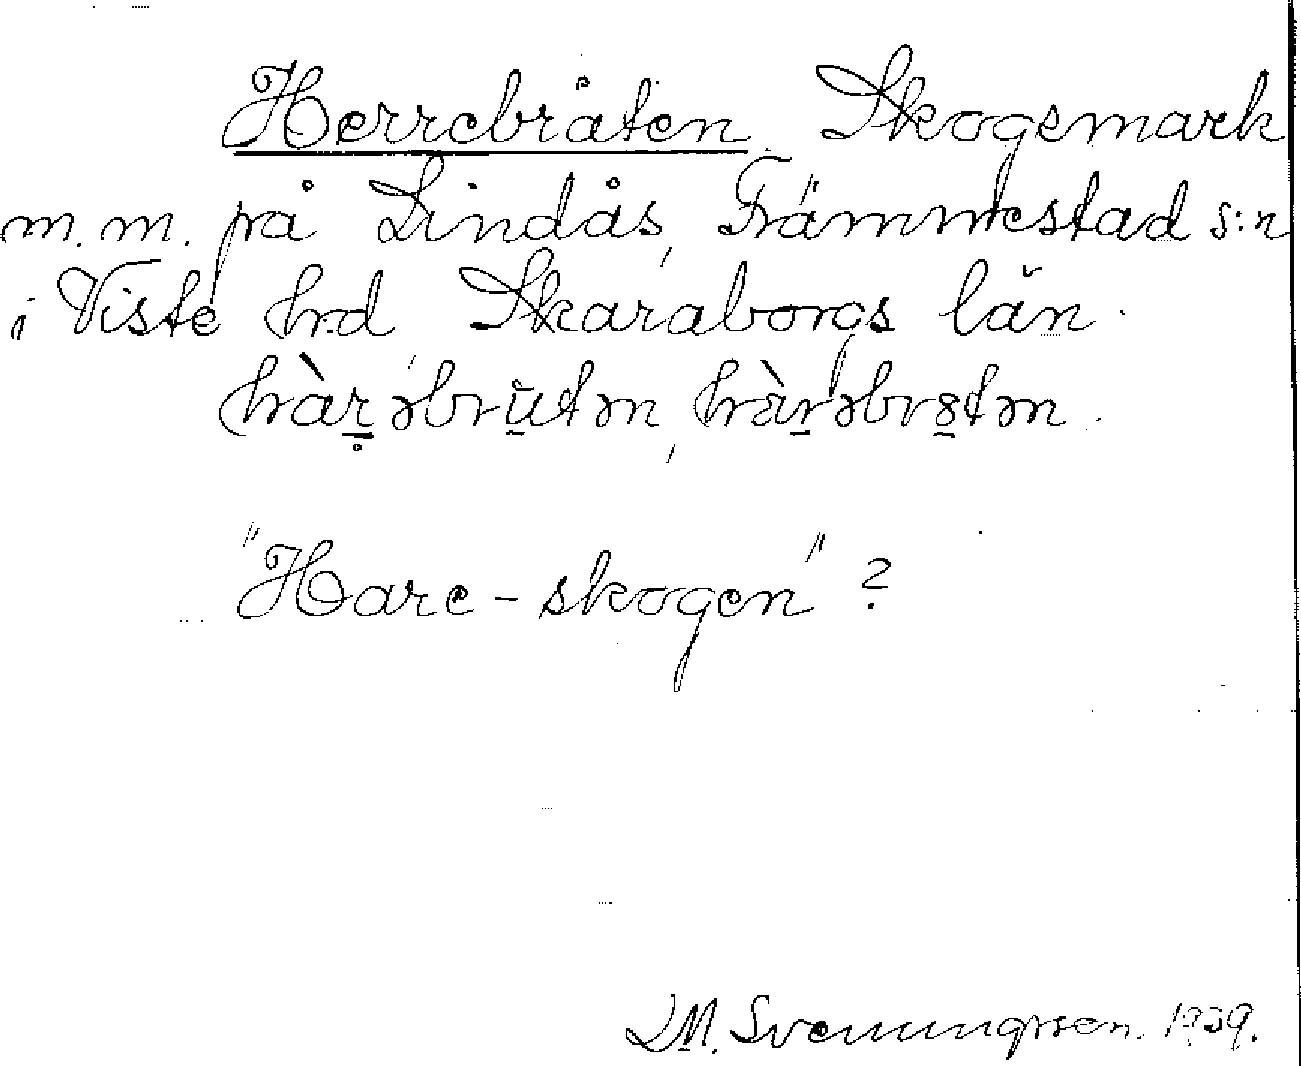 Herrebråten. Skogsmark
m.m. på Lindås, Främmestad s:n
i Viste hrd Skaraborgs län.
hàr̥əbrūtən, hàrəbrstən.
"Hare-skogen" ?
D.M. Svenungsson. 1939.